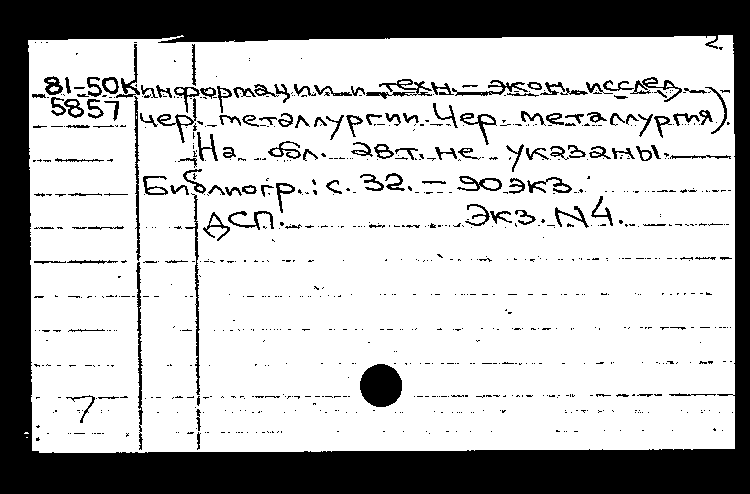 2.
81-50К информации и техн. – экон. исслед.
5857 чер. металлургии. Чер. металлургия)
На обл. авт. не указаны.
Библиогр.: с. 32. – 90 экз.
ДСП. Экз. N4.
7